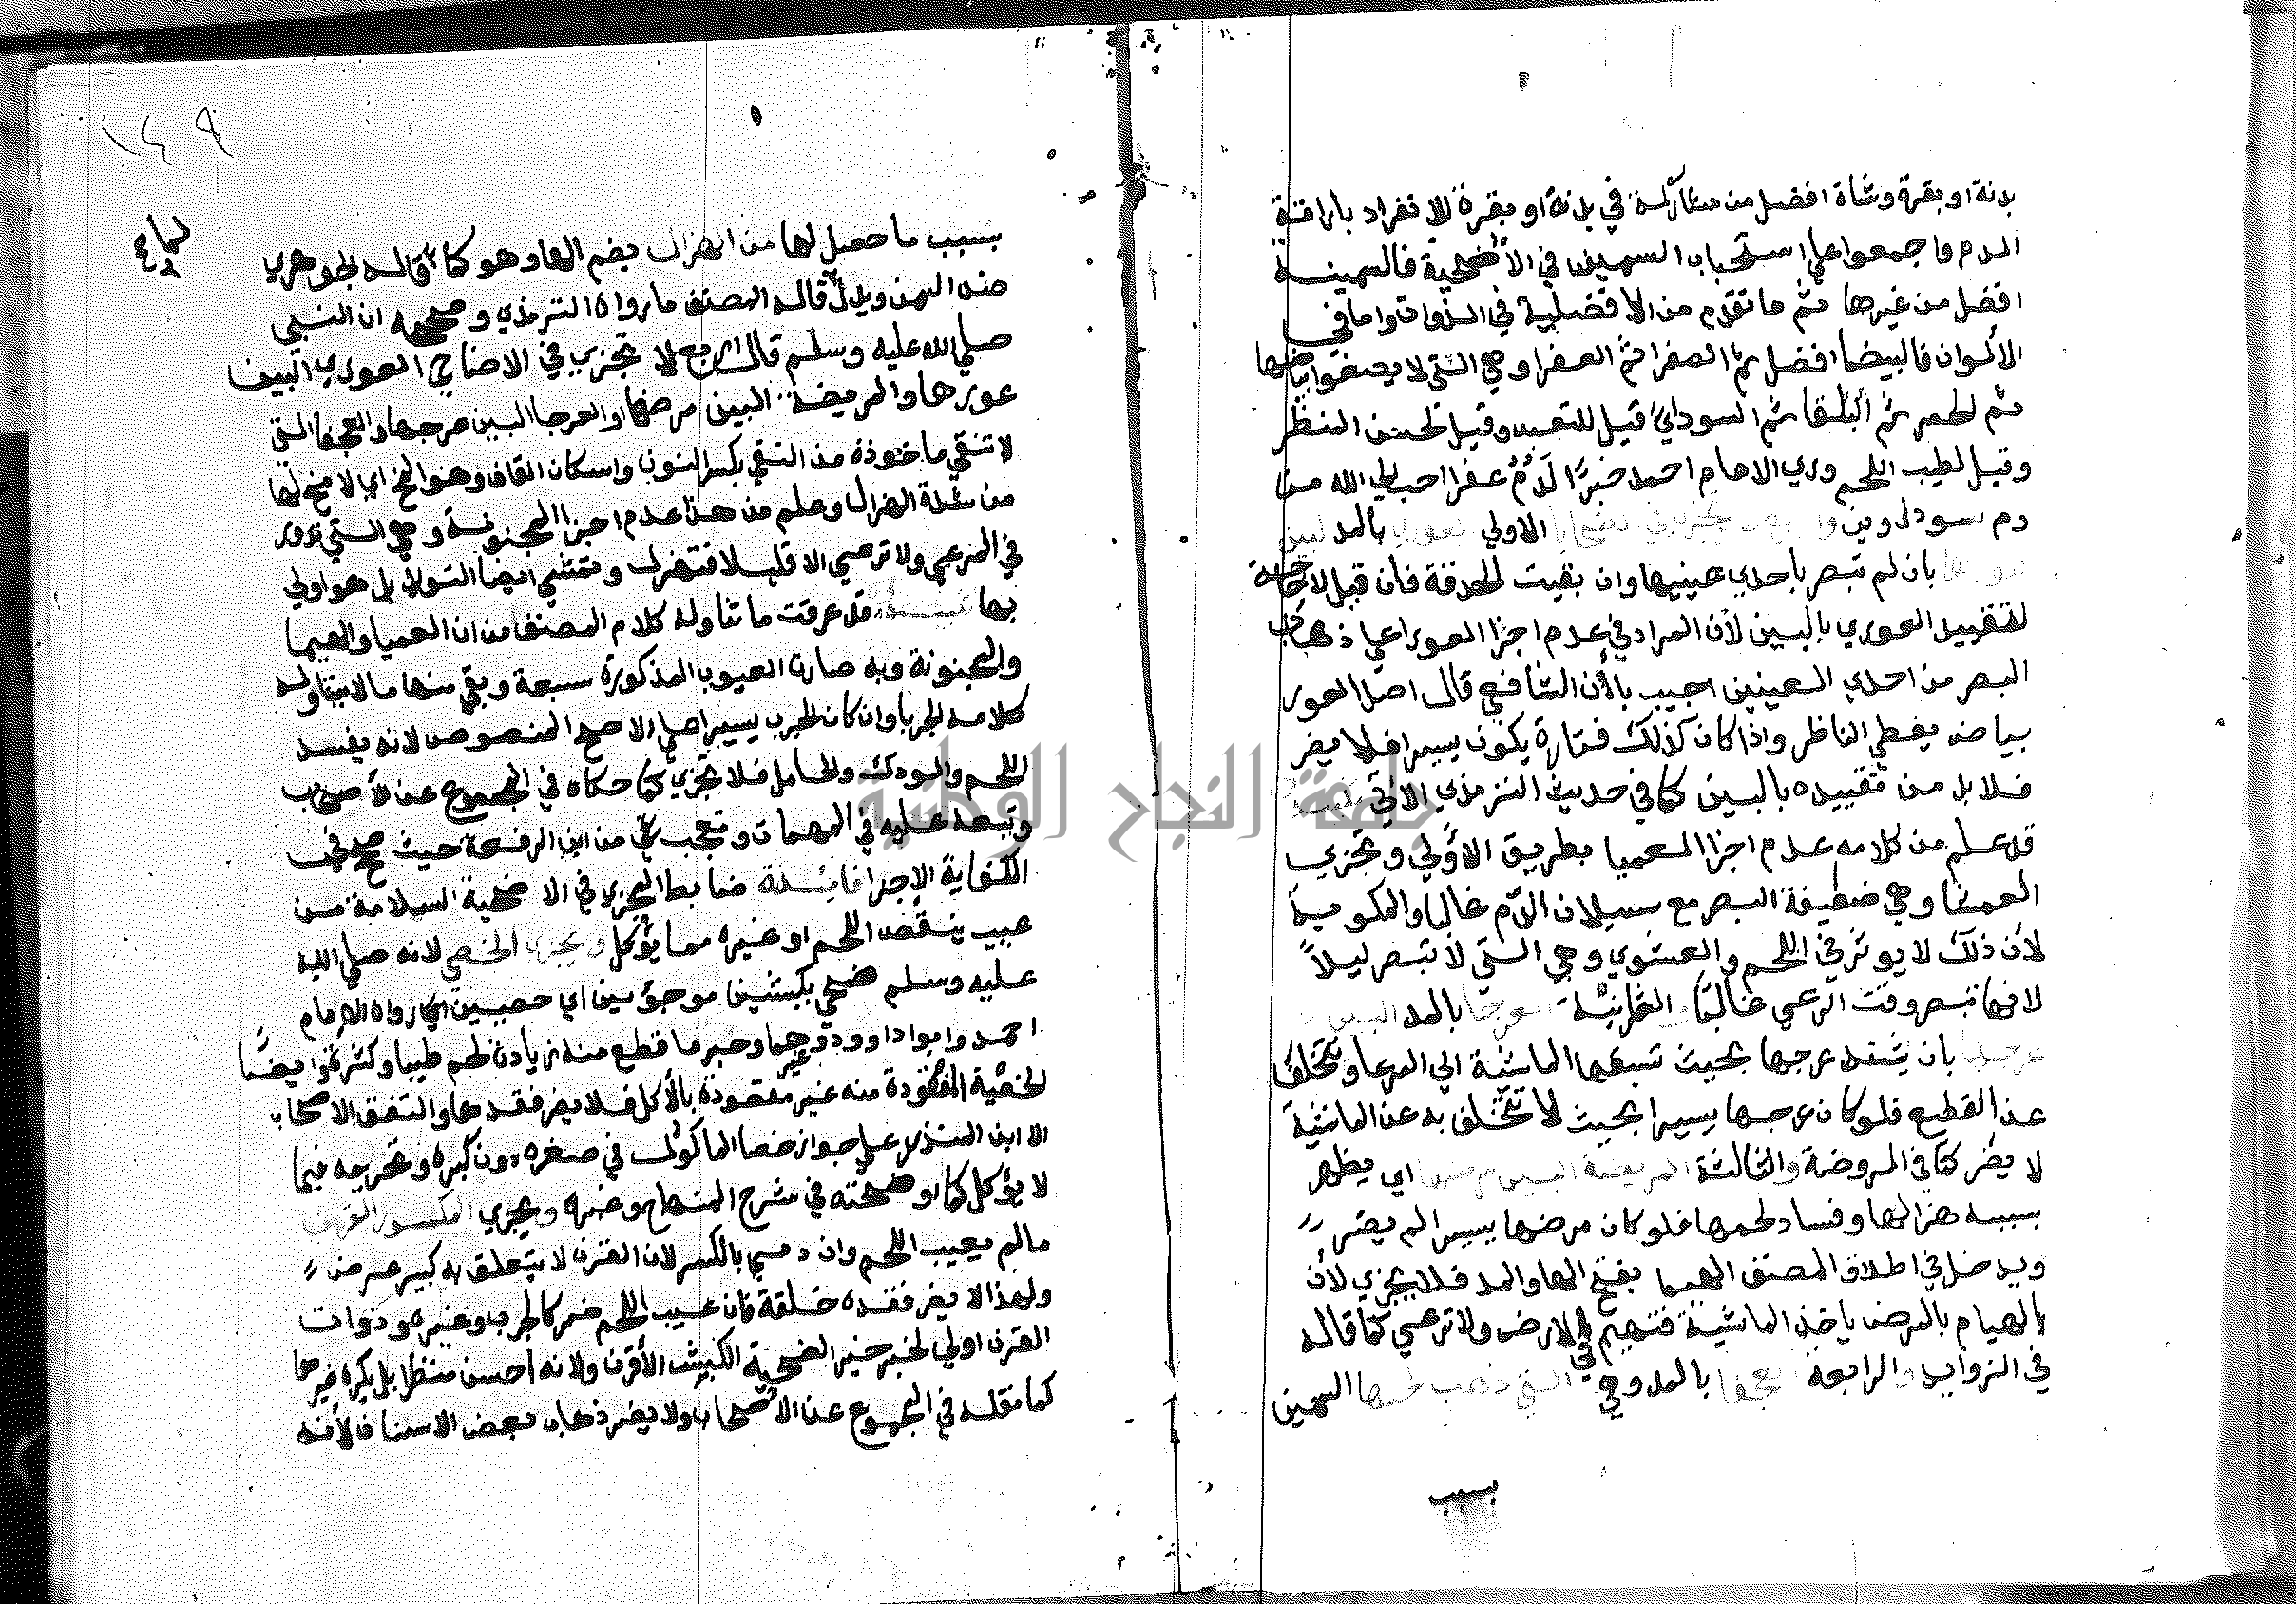 بدنة او بقرة وشاة افضل من مشاركة في بدنة او بقرة للانفراد باراقة
الدم واجمعوا علي استحباب السمين في الأضحية فالسمينة
افضل من غيرها ثم ما تقدم من الافضلية في الذوات واما في
الألوان فالبيضا افضل ثم الصفرا ثم العفرا وهي التي لا يصفوا بياضها
ثم الحمر ثم البلقا ثم السودا قيل للتعبد وقيل لحسن المنظر
وقيل لطيب اللحم وروي الامام احمد خبرًا لدم عفرا احب الي الله من
دم سوداوين الاولي بالمد لبين
بان لم تبصر باحدي عينيها وان بقيت الحدقة فان قيل لا حاجة
لتقييد العورا بالبين لأن المراد في عدم اجزا العورا علي ذهاب
البصر من احدي العينين اجيب بالأن الشافعي قال اصل العور
بياض يغطي الناظر واذا كان كذلك فتارة يكون يسيرا فلا يضر
فلا بد من تقييده بالبين كما في حديث الترمذي الاتي
قد علم من كلامه عدم اجزا العميا بطريق الأولي وتجزي
العمشا وهي ضعيفة البصر مع سيلان الدم غالبا والمكوية
لأن ذلك لا يوثر في اللحم والعشوي وهي التي لا تبصر ليلاً
لانها تبصر وقت الرعي غالبًا والثانية العرجا بالمد البين
عرجها بان يشتد عرجها بحيث تسبقها الماشية الي المرعا وتتخلف
عن القطيع فلو كان عرجها يسيرا بحيث لا تتخلف به عن الماشية
لا يضر كما في الروضة والثالثة المريضة البين مرضها اي يظهر
بسببه هزالها وفساد لحمها فلو كان مرضها يسيرا لم يضر
ويدخل في اطلاق المصنف الهيما بفتح الها والمد فلا يجزي لأن
بالهيام بالمرض ياخذ الماشية فتهيم في الارض ولا ترعي كما قاله
في الزوايد والرابعة العجفا بالمد وهي التي ذهب لحمها السمين
بسبب
١٤٩
بسبب ما حصل لها من الهزال بضم الها وهو كما قاله الجوهري
ضد السمن ويدل قاله المصنف ما رواه الترمذي وصححه ان النبي
صلي الله عليه وسلم قال اربع لا تجزي في الاضاحي العورا البين
عورها والمريضة البين مرضها والعرجا البين عرجها والعجفا التي
لا تنقي ماخوذة من النقي بكسر النون واسكان القاف وهو المخ اي لا مخ لها
من شدة الهزال وعلم من هذا عدم اجزا المجنونة وهي التي تدور
في المرعي ولا ترعي الا قليلا فتهزل وتسمي ايضا التولا بل هو اولي
بها تنبيه قد عرفت ما تناوله كلام المصنف من ان العميا والهيما
والمجنونة وبه صارت العيوب المذكورة سبعة وبقي منها ما لا يتناوله
كلامه الجربا وان كان الجرب يسيرا علي الاصح المنصوص لانه يفسد
اللحم والودك والحامل فلا تجزي كما حكاه في المجموع عن الأصحاب
وتبعه عليه في المهمات وتعجب من ابن الرفعة حيث صحح في
الكفاية الاجزا فائدة ضابط المجزي في الاضحية السلامة من
عيب ينقص اللحم او غيره مما يؤكل ويجزي الخصي لانه صلي الله
عليه وسلم ضحي بكبشين موجؤين اي خصيين اي رواه الامام
احمد وابو داوود وغيرهما وخبر ما قطع منه زيادة لحم طيبا وكثرة وايضًا
الخصية المفقودة منه غير مقصودة بالأكل فلا يضر فقدها واتفق الاصحاب
الا ابن المنذر علي جواز خصا الماكول في صغره دون كبره وتحريمه فيما
لا يؤكل كما اوضحته في شرح المنهاج وغيره ويجزي مكسور القرن
ما لم يعيب اللحم وان دمي بالكسر لان القرن لا يتعلق به كبير غرض
ولهذا لا يضر فقده خلقة فان عيب اللحم ضر كالجرب وغيره وذوات
القرن اولي لخبر خير الضحية الكبش الأقرن ولانه احسن منظرا بل يكره غيرها
كما نقله في المجموع عن الأصحاب ولا يضر ذهاب بعض الاسنان لأنه
جامعة النجاح الوطنية